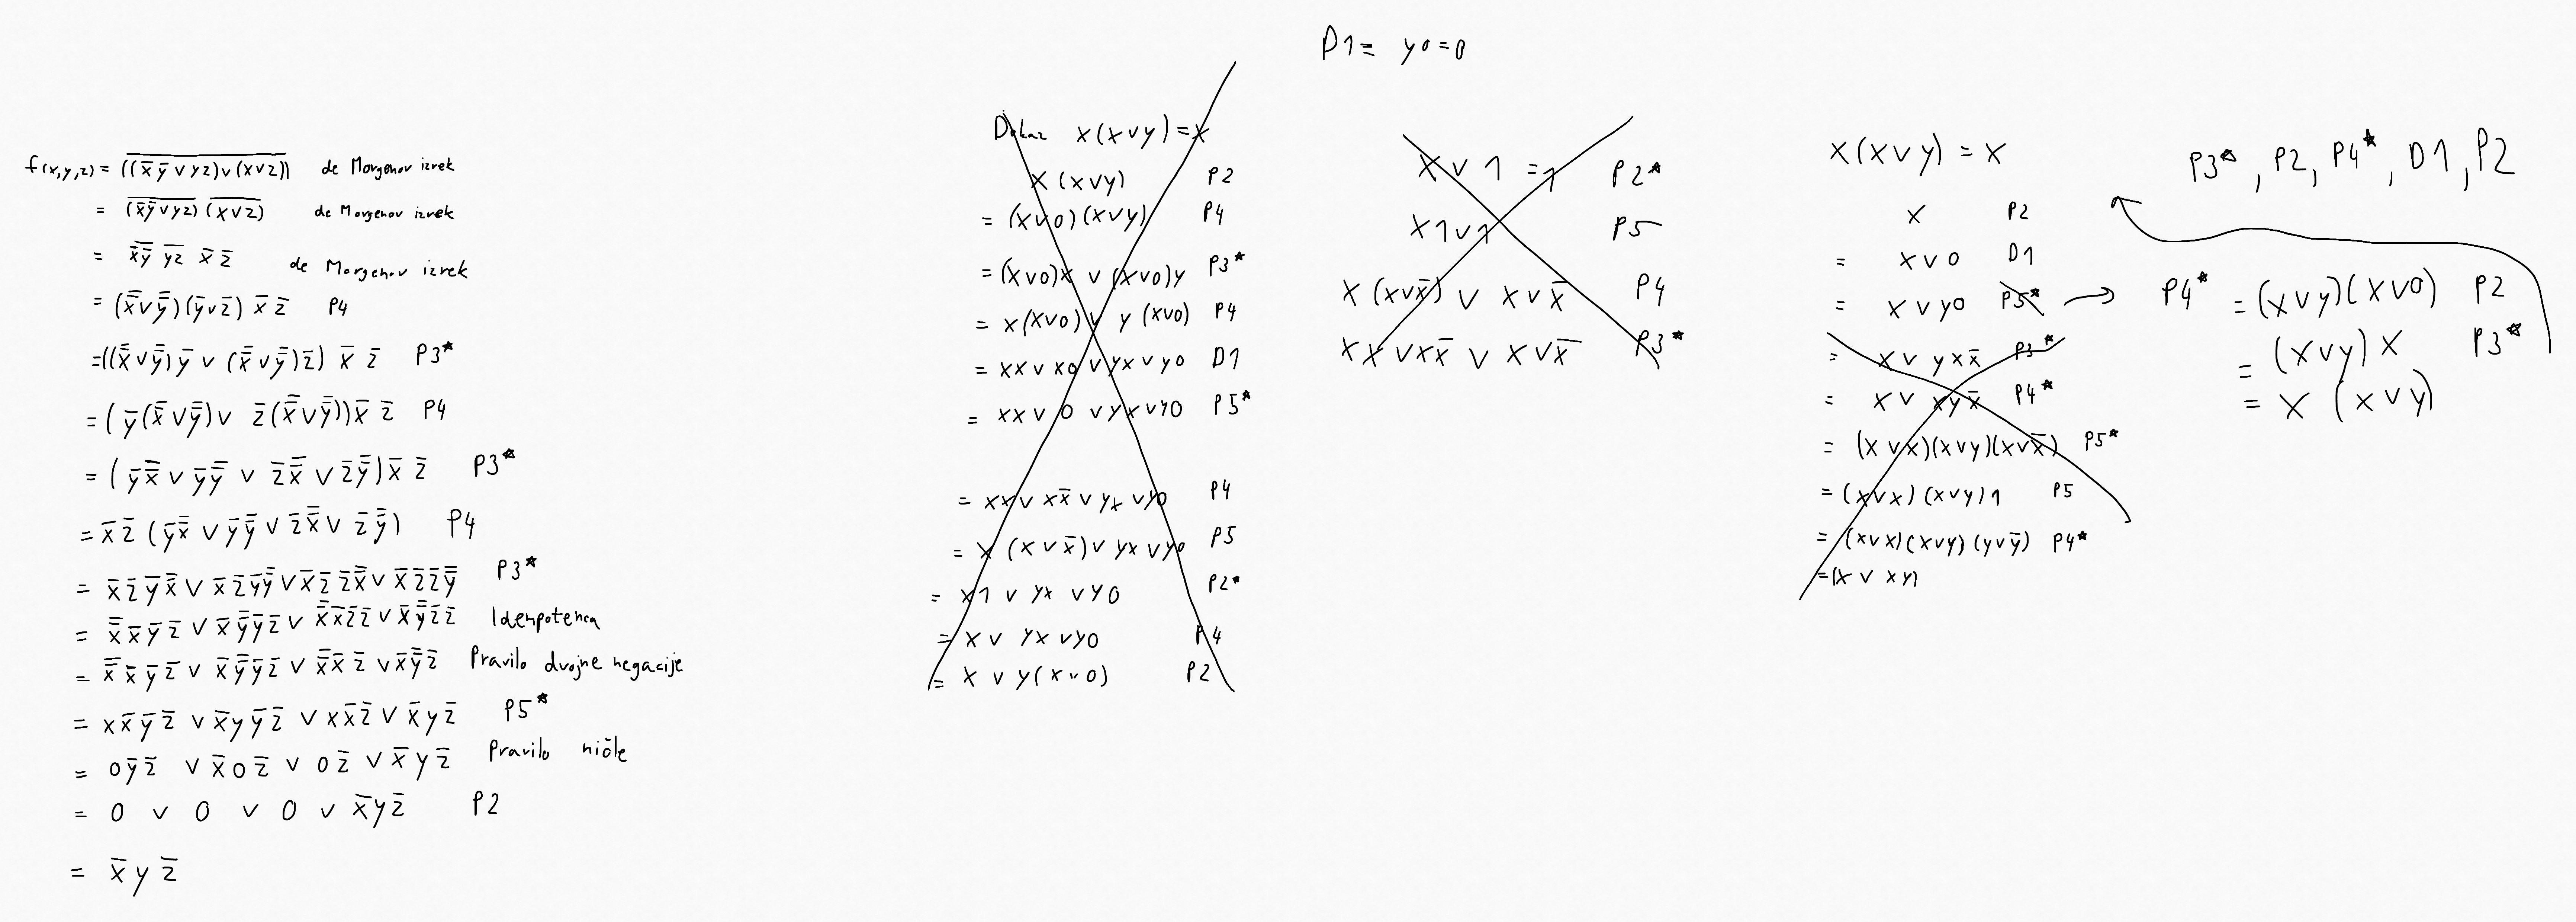 f(x,y,z) = \overline{((\bar{x}\bar{y} ∨ yz) ∨ (x∨z))} de Morgenov izrek
= \overline{(\bar{x}\bar{y} ∨ yz)} \overline{(x∨z)} de Morgenov izrek
= \overline{\bar{x}\bar{y}} \overline{yz} \bar{x} \bar{z} de Morgenov izrek
= (\bar{\bar{x}} ∨ \bar{\bar{y}})(\bar{y} ∨ \bar{z}) \bar{x} \bar{z} P4
= ((\bar{\bar{x}} ∨ \bar{\bar{y}})\bar{y} ∨ (\bar{\bar{x}} ∨ \bar{\bar{y}})\bar{z}) \bar{x} \bar{z} P3*
= (\bar{y}(\bar{\bar{x}} ∨ \bar{\bar{y}}) ∨ \bar{z}(\bar{\bar{x}} ∨ \bar{\bar{y}})) \bar{x} \bar{z} P4
= (\bar{y}\bar{\bar{x}} ∨ \bar{y}\bar{\bar{y}} ∨ \bar{z}\bar{\bar{x}} ∨ \bar{z}\bar{\bar{y}}) \bar{x} \bar{z} P3*
= \bar{x}\bar{z}(\bar{y}\bar{\bar{x}} ∨ \bar{y}\bar{\bar{y}} ∨ \bar{z}\bar{\bar{x}} ∨ \bar{z}\bar{\bar{y}}) P4
= \bar{x}\bar{z}\bar{y}\bar{\bar{x}} ∨ \bar{x}\bar{z}\bar{y}\bar{\bar{y}} ∨ \bar{x}\bar{z}\bar{z}\bar{\bar{x}} ∨ \bar{x}\bar{z}\bar{z}\bar{\bar{y}} P3*
= \bar{\bar{x}}\bar{x}\bar{y}\bar{z} ∨ \bar{x}\bar{\bar{y}}\bar{y}\bar{z} ∨ \bar{\bar{x}}\bar{x}\bar{z}\bar{z} ∨ \bar{x}\bar{\bar{y}}\bar{z}\bar{z} Idempotenca
= \bar{\bar{x}}\bar{x}\bar{y}\bar{z} ∨ \bar{x}\bar{\bar{y}}\bar{y}\bar{z} ∨ \bar{\bar{x}}\bar{x}\bar{z} ∨ \bar{x}\bar{\bar{y}}\bar{z} Pravilo dvojne negacije
= x\bar{x}\bar{y}\bar{z} ∨ \bar{x}y\bar{y}\bar{z} ∨ x\bar{x}\bar{z} ∨ \bar{x}y\bar{z} P5*
= 0\bar{y}\bar{z} ∨ \bar{x}0\bar{z} ∨ 0\bar{z} ∨ \bar{x}y\bar{z} Pravilo ničle
= 0 ∨ 0 ∨ 0 ∨ \bar{x}y\bar{z} P2
= \bar{x}y\bar{z}
Dokaz x(x∨y)=x
x(x∨y) P2
= (x∨0)(x∨y) P4
= (x∨0)x ∨ (x∨0)y P3*
= x(x∨0) ∨ y(x∨0) P4
= xx ∨ x0 ∨ yx ∨ y0 D1
= xx ∨ 0 ∨ yx ∨ y0 P5*
= xx ∨ x\bar{x} ∨ yx ∨ y0 P4
= x(x∨\bar{x}) ∨ yx ∨ y0 P5
= x1 ∨ yx ∨ y0 P2*
= x ∨ yx ∨ y0 P4
= x ∨ y(x∨0) P2
D1= y0=0
x ∨ 1 = 1 P2*
x1∨1 P5
x(x∨\bar{x}) ∨ x∨\bar{x} P4
xx ∨ x\bar{x} ∨ x∨\bar{x} P3*
x(x∨y) = x
x P2
= x∨0 D1
= x∨y0 P5*
= x ∨ yx\bar{x} P3*
= x ∨ xy\bar{x} P4*
= (x∨x)(x∨y)(x∨\bar{x}) P5*
= (x∨x)(x∨y)1 P5
= (x∨x)(x∨y)(y∨\bar{y}) P4*
=(x ∨ xy)
P3*, P2, P4*, D1, P2
P4* = (x∨y)(x∨0) P2
= (x∨y)x P3*
= x(x∨y)